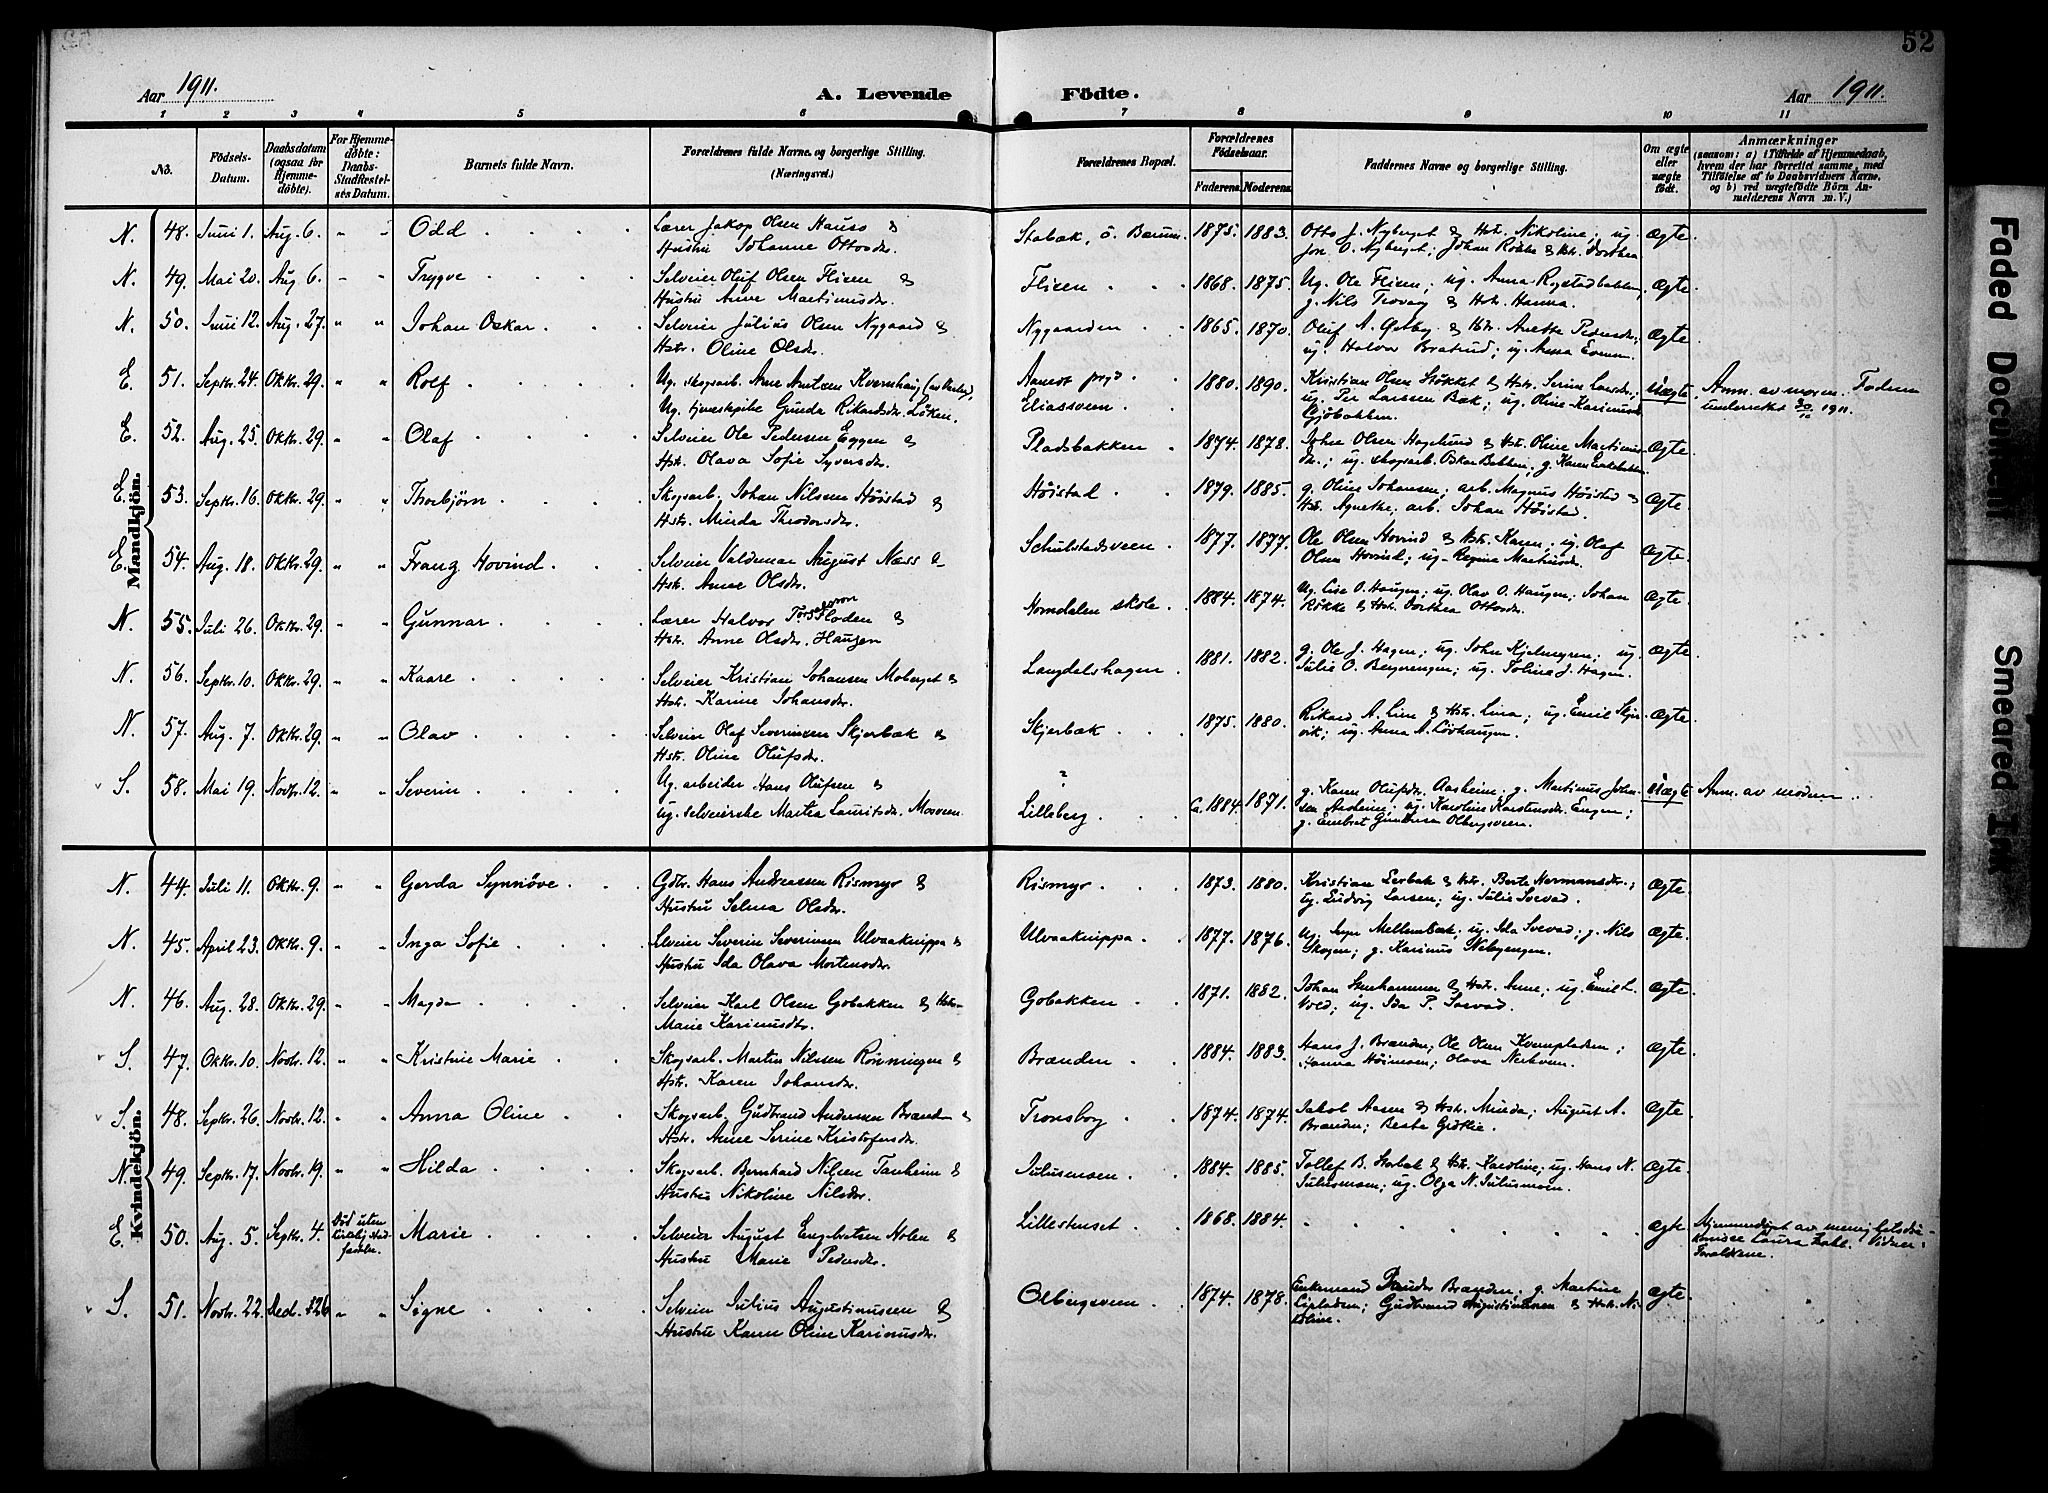 52
Aar 1911.
A. Levende Födte.
Aar 1911.
1 2 3 4 5 6 7 8 9 10 11
No.
Födsels-Datum.
Daabsdatum (ogsaa for Hjemmedöbte).
For Hjemmedöbte: Daabs-Stadfæstelses Datum.
Barnets fulde Navn.
Forældrenes fulde Navne og borgerlige Stilling. (Næringsvei.)
Forældrenes Bopæl.
Forældrenes Födselsaar.
Faderens. Moderens.
Faddernes Navne og borgerlige Stilling.
Om ægte eller uægte födt.
Anmærkninger
(saasom: a) i Tilfælde af Hjemmedaab, hvem der har forrettet samme, med Tilföielse af to Daabsvidners Navne, og b) ved uægtefödte Börn Anmelderens Navn m. V.)
Mandkjön.
N. 48. Juni 1. Aug. 6. " " Odd . . . . Lærer Jakop Olsen Hauso & Hustru Johanne Ottosdr. Stabæk, ö. Bærum. 1875. 1883. Otto J. Nyberget & Hst. Nikoline; ug. Jon O. Nyberget; Johan Rökke & Hst. Dorthea Ægte.
N. 49. Mai 20. Aug 6. " " Trygve . . . . Selveier Oluf Olsen Flisen & Hustru Anne Martinusdr. Flisen . . 1868. 1875. Ug. Ole Flisen; ug. Anna Rystadbakken, g. Nils Trovaag & Hst. Hanna. Ægte.
N. 50. Juni 12. Aug. 27. " " Johan Oskar . . . Selveier Julius Olsen Nygaard & Hstr. Oline Olsdr. Nygaarden . . 1865. 1870. Oluf A. & Hst. Anette Pedersdr.; ug. Halvor Bratrud; ug. Anna Ægte.
E. 51. Septr. 24. Oktr. 29. " " Rolf . . . . Ug. skogsarb. Arne Kvernhaug Ug. tjenestepike Gunda Rikardsdr. Löken. Aamot prgd . Eliasveen . 1880. 1890. Kristian Olsen Stökket & Hst. Serine Larsdr.; ug. Per Larssen Bæk; ug. Oline Karinusdr. Gjöbakken. Uægte. Anm. av moren. Faderen underrettet 30/10 1911.
E. 52. Aug. 25. Oktr. 29. " " Olaf . . . . Selveier Ole Pedersen Eggen & Hst. Olava Sofie Syversdr. Pladsbakken . 1874. 1878. Johan Olsen Hagelund & Hst. Oline Martinusdr.; ug. skogsarb. Oskar Bakken; g. Karen Ægte.
E. 53. Septr. 16. Oktr. 29. " " Thorbjörn . . . Skogsarb. Johan Nilssen Höistad & Hstr. Minda Theodorsdr. Höistad . . 1879. 1885. g. Oline Johansen; arb. Magnus Höistad & Hst. Agnethe; arb. Johan Höistad. Ægte.
E. 54. Aug. 18. Oktr. 29. " " Franz Hovind . . . Selveier Valdemar August Næss & Hst. Anne Olsdr. Schulstadsveen . 1877. 1877. Ole Olsen Hovind & Hst. Karen; ug. Olaf Olsen Hovind; ug. Regina Martinsdr. Ægte.
N. 55. Juli 26. Oktr. 29. " " Gunnar . . . . Lærer Halvor Floden & Hst. Anne Olsdr. Haugen Horndalen skole . 1884. 1874. Ug. Lise O. Haugen; ug. Olav O. Haugen; Johan Rökke & Hst. Dorthea Ottosdr. Ægte.
N. 56. Septr. 10. Oktr. 29. " " Kaare . . . . Selveier Kristian Johansen Moberget & Hst. Karine Johansdr. Langdelshagen . 1881. 1882. g. Ole J. Hagen; ug. John Kjelmyren; ug. Julie O. Bergerengen; ug. Jolina J. Hagen. Ægte.
N. 57. Aug. 7. Oktr. 29. " " Olav . . . . Selveier Olaf Severinsen Skjerbæk & Hst. Oline Olufsdr. Skjerbæk . . 1875. 1880. Rikard A. Line & Hst. Lina; ug. Emil Skjervik; ug. Anna A. Lövhaugen. Ægte.
S. 58. Mai 19. Novbr. 12. " " Severin . . . . Ug. arbeider Hans Olufsen & ug. selveierske Martea Lauritsdr. Moeveen. ? Lilleberg . . Ca. 1884. 1871. g. Karen Olufsdr. Aasheim; g. Martinus Johnsen Aasheim; ug. Karoline Karstensdr. Engen; g. Embret Gundersen Olbergsveen. Uægte. Anm. av moderen.
Kvindekjön.
N. 44. Juli 11. Oktr. 9. " " Gerda Synnöve . . . Gdbr. Hans Andreassen Rismyr & Hustru Selma Olsdr. Rismyr . . 1873. 1880. Kristian Lerbak & Hst. Berte Hermansdr.; ug. Ludvig Larsen; ug. Julie Svevad. Ægte.
N. 45. April 23. Oktr. 9. " " Inga Sofie . . . Selveier Severin Severinsen Ulvaaknippa & Hustru Ida Olava Mortensdr. Ulvaaknippa . 1877. 1876. Ug. Mellembæk; ug. Ida Svevad; g. Nils Skogen; g. Karinus Nebyengen. Ægte.
N. 46. Aug. 28. Oktr. 29. " " Magda . . . . Selveier Karl Olsen Gobakken & Hst. Marie Karinusdtr. Gobakken . 1871. 1882. Johan Stenhammer & Hst. Anne; ug. Emil L. Vold; ug. Ida P. Svevad. Ægte.
S. 47. Oktr. 10. Novbr. 12. " " Kristine Marie . . Skogsarb. Martin Nilssen Rönningen & Hst. Karen Johansdr. Brænden . . 1884. 1883. Hans J. Brænden; Ole Olsen Kvernpladsen; Hanna Höimoen; Olava Nerkveen. Ægte.
S. 48. Septr. 26. Novbr. 12. " " Anna Oline . . Skogsarb. Gudbrand Andersen Brænd & Hst. Anne Serine Kristofersdr. Tronsbog . . 1874. 1874. Jakob Aasen & Hst. Minda; August A. Brænden; Beate Gröklie. Ægte.
N. 49. Septr. 17. Novbr. 19. " " Hilda . . . . Skogsarb. Bernhard Nilsen Tanheim & Hustru Nikoline Nilsdr. Julusmoen . . 1884. 1885. Tollef B. Stabak & Hst. Karoline; ug. Hans N. Julusmoen; ug. Olga N. Julusmoen. Ægte.
E. 50. Aug. 5. Septr. 4. Död uten kirkelig stadfestelse. Marie . . . . Selveier August Engebretsen Holen & Hustru Marie Pedersdr. Lillestenset . 1868. 1884. " " " " " Ægte Hjemmedöpt av menighetsdiakonisse Laura Vidner: Foreldrene.
S. 51. Novbr. 22. Ded. 26 " " Signe . . . . Selveier Julius Augustinussen & Hustru Karen Oline Karinusdr. Olbergsveen . 1874. 1878. Enkemand Peder Brænden; g. Martine Lipladsen; Gudbrand Augustinussen & Hst. Nikoline. ægte.
Faded Document
Smeared Ink